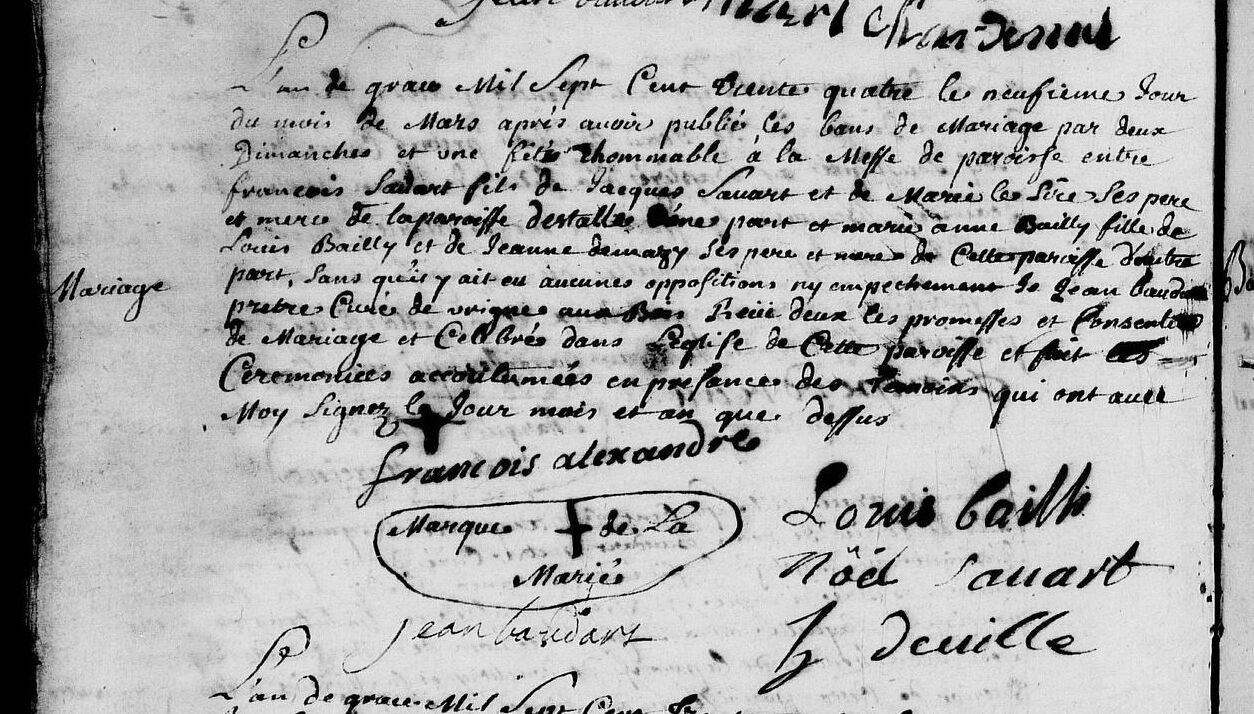 Chardenal
L'an de grace Mil Sept Cent Trente quatre le neufieme Jour
du mois de Mars aprés avoir publié les bans de Mariage par deux
Dimanches et une fête Chommable à la Messe de paroisse entre
francois Sauart fils de Jacques Sauart et de Marie le Sire Ses pere
et mere de la paroisse destalle d'une part et marie anne Bailly fille de
Louis Bailly et de Jeanne demazy Ses pere et mere de Cette paroisse d'autre
Mariage
part, sans qu'il y ait eu aucunes oppositions ny empechement Je Jean baudart
pretre Curé de vrigne aux Bois Reçu deux les promesses et Consente
de Mariage et Celebré dans l'Eglise de Cette paroisse et fait les
Ceremonies accoutumées en presance des Temoins qui ont avec
Moy Signez le Jour mois et an que dessus
francois alexandre
Marque + de La
Marié
Louis bailli
Nöel Sauart
jean baudart
h deuille
L'an de grace Mil Sept Cent